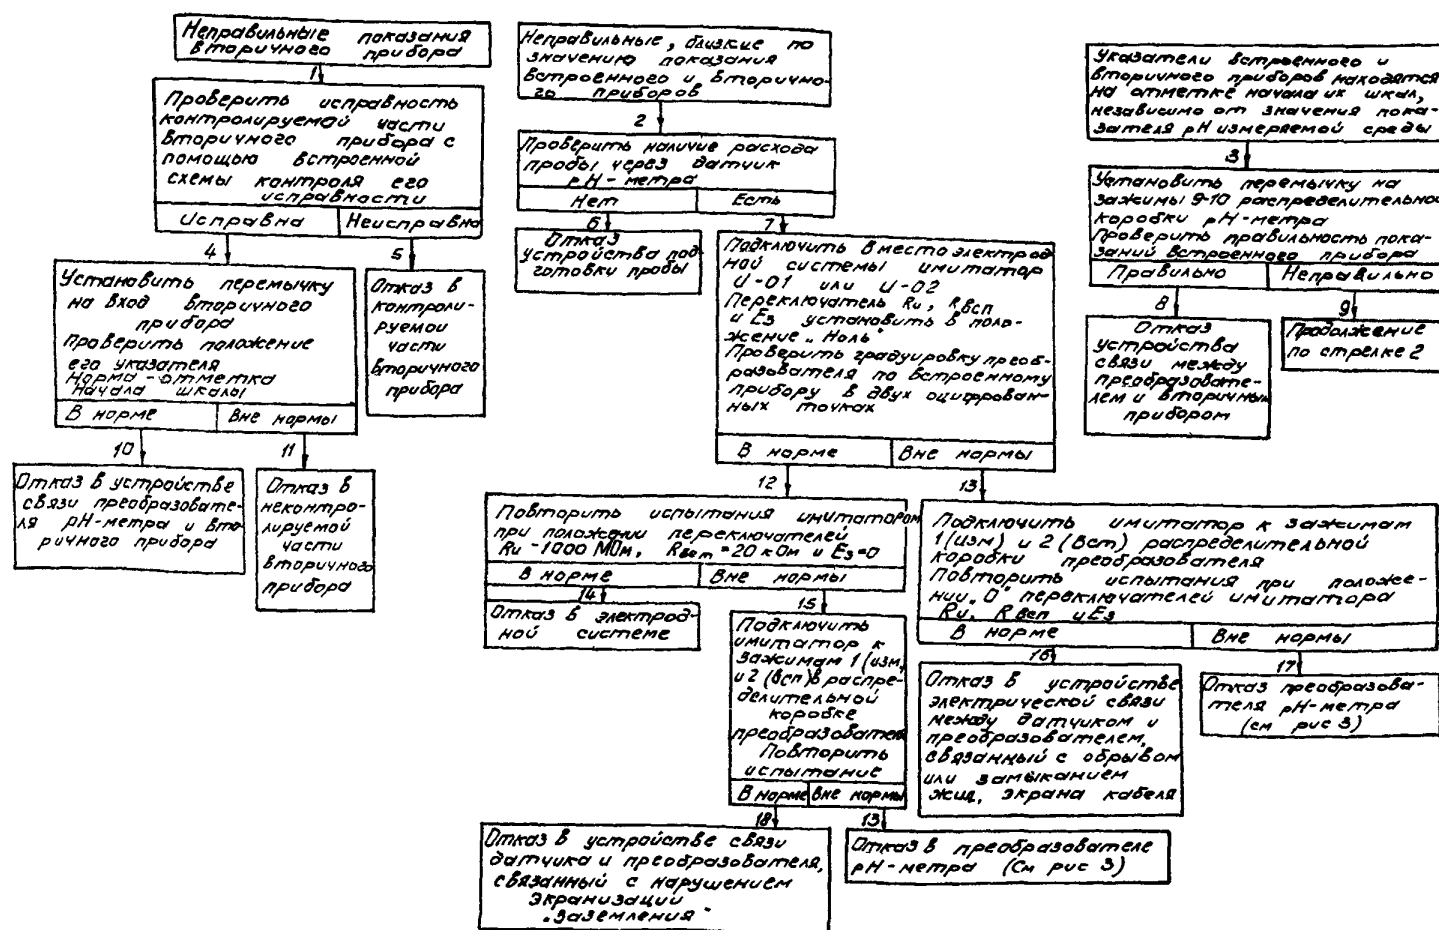 Неправильные показания
вторичного прибора
1
Проверить исправность
контролируемой части
вторичного прибора с
помощью встроенной
схемы контроля его
исправности
Исправна
Неисправна
4
5
Установить перемычку
на вход вторичного
прибора
Проверить положение
его указателя
Норма - отметка
начала шкалы
В норме
Вне нормы
Отказ в
контроли-
руемой
части
вторичного
прибора
10
11
Отказ в устройстве
связи преобразовате-
ля рН-метра и вто-
ричного прибора
Отказ в
неконтро-
лируемой
части
вторичного
прибора
Неправильные, близкие по
значению показания
встроенного и вторично-
го приборов
2
Проверить наличие расхода
пробы через датчик
рН-метра
Нет
Есть
6
7
Отказ
устройства под-
готовки пробы
Подключить вместо электрод
ной системы имитатор
И-01 или И-02
Переключатель Rи, Rвсп
и Ез установить в поло-
жение „Ноль"
Проверить градуировку преоб-
разователя по встроенному
прибору в двух оцифрован-
ных точках
В норме
Вне нормы
12
13
Повторить испытания имитатором
при положении переключателей
Rи -1000 МОм, Rвсп =20 кОм и Ез=0
В норме
Вне нормы
14
15
Отказ в электрод-
ной системе
Подключить
имитатор к
зажимам 1 (изм,
и 2 (всп) в распре-
делительной
коробке
преобразователя
Повторить
испытание
В норме
Вне нормы
18
13
Отказ в устройстве связи
датчика и преобразователя,
связанный с нарушением
экранизации
„заземления"
Отказ в преобразователе
рН-метра (См рис 3)
Подключить имитатор к зажимам
1 (изм) и 2 (Вст) распределительной
коробки преобразователя
Повторить испытания при положе-
нии „О" переключателей имитатора
Rи, Rвсп и Ез
В норме
Вне нормы
16
17
Отказ в устройстве
электрической связи
между датчиком и
преобразователем,
связанный с обрывом
или замыканием
жил, экрана кабеля
Отказ преобразова-
теля рН-метра
(см рис 3)
Указатели встроенного и
вторичного приборов находятся
на отметке начала их шкал,
независимо от значения пока-
зателя рН измеряемой среды
3
Установить перемычку на
зажимы 9-10 распределительной
коробки рН-метра
Проверить правильность пока-
заний встроенного прибора
Правильно
Неправильно
8
9
Отказ
устройства
связи между
преобразовате-
лем и вторичным
прибором
Продолжение
по стрелке 2